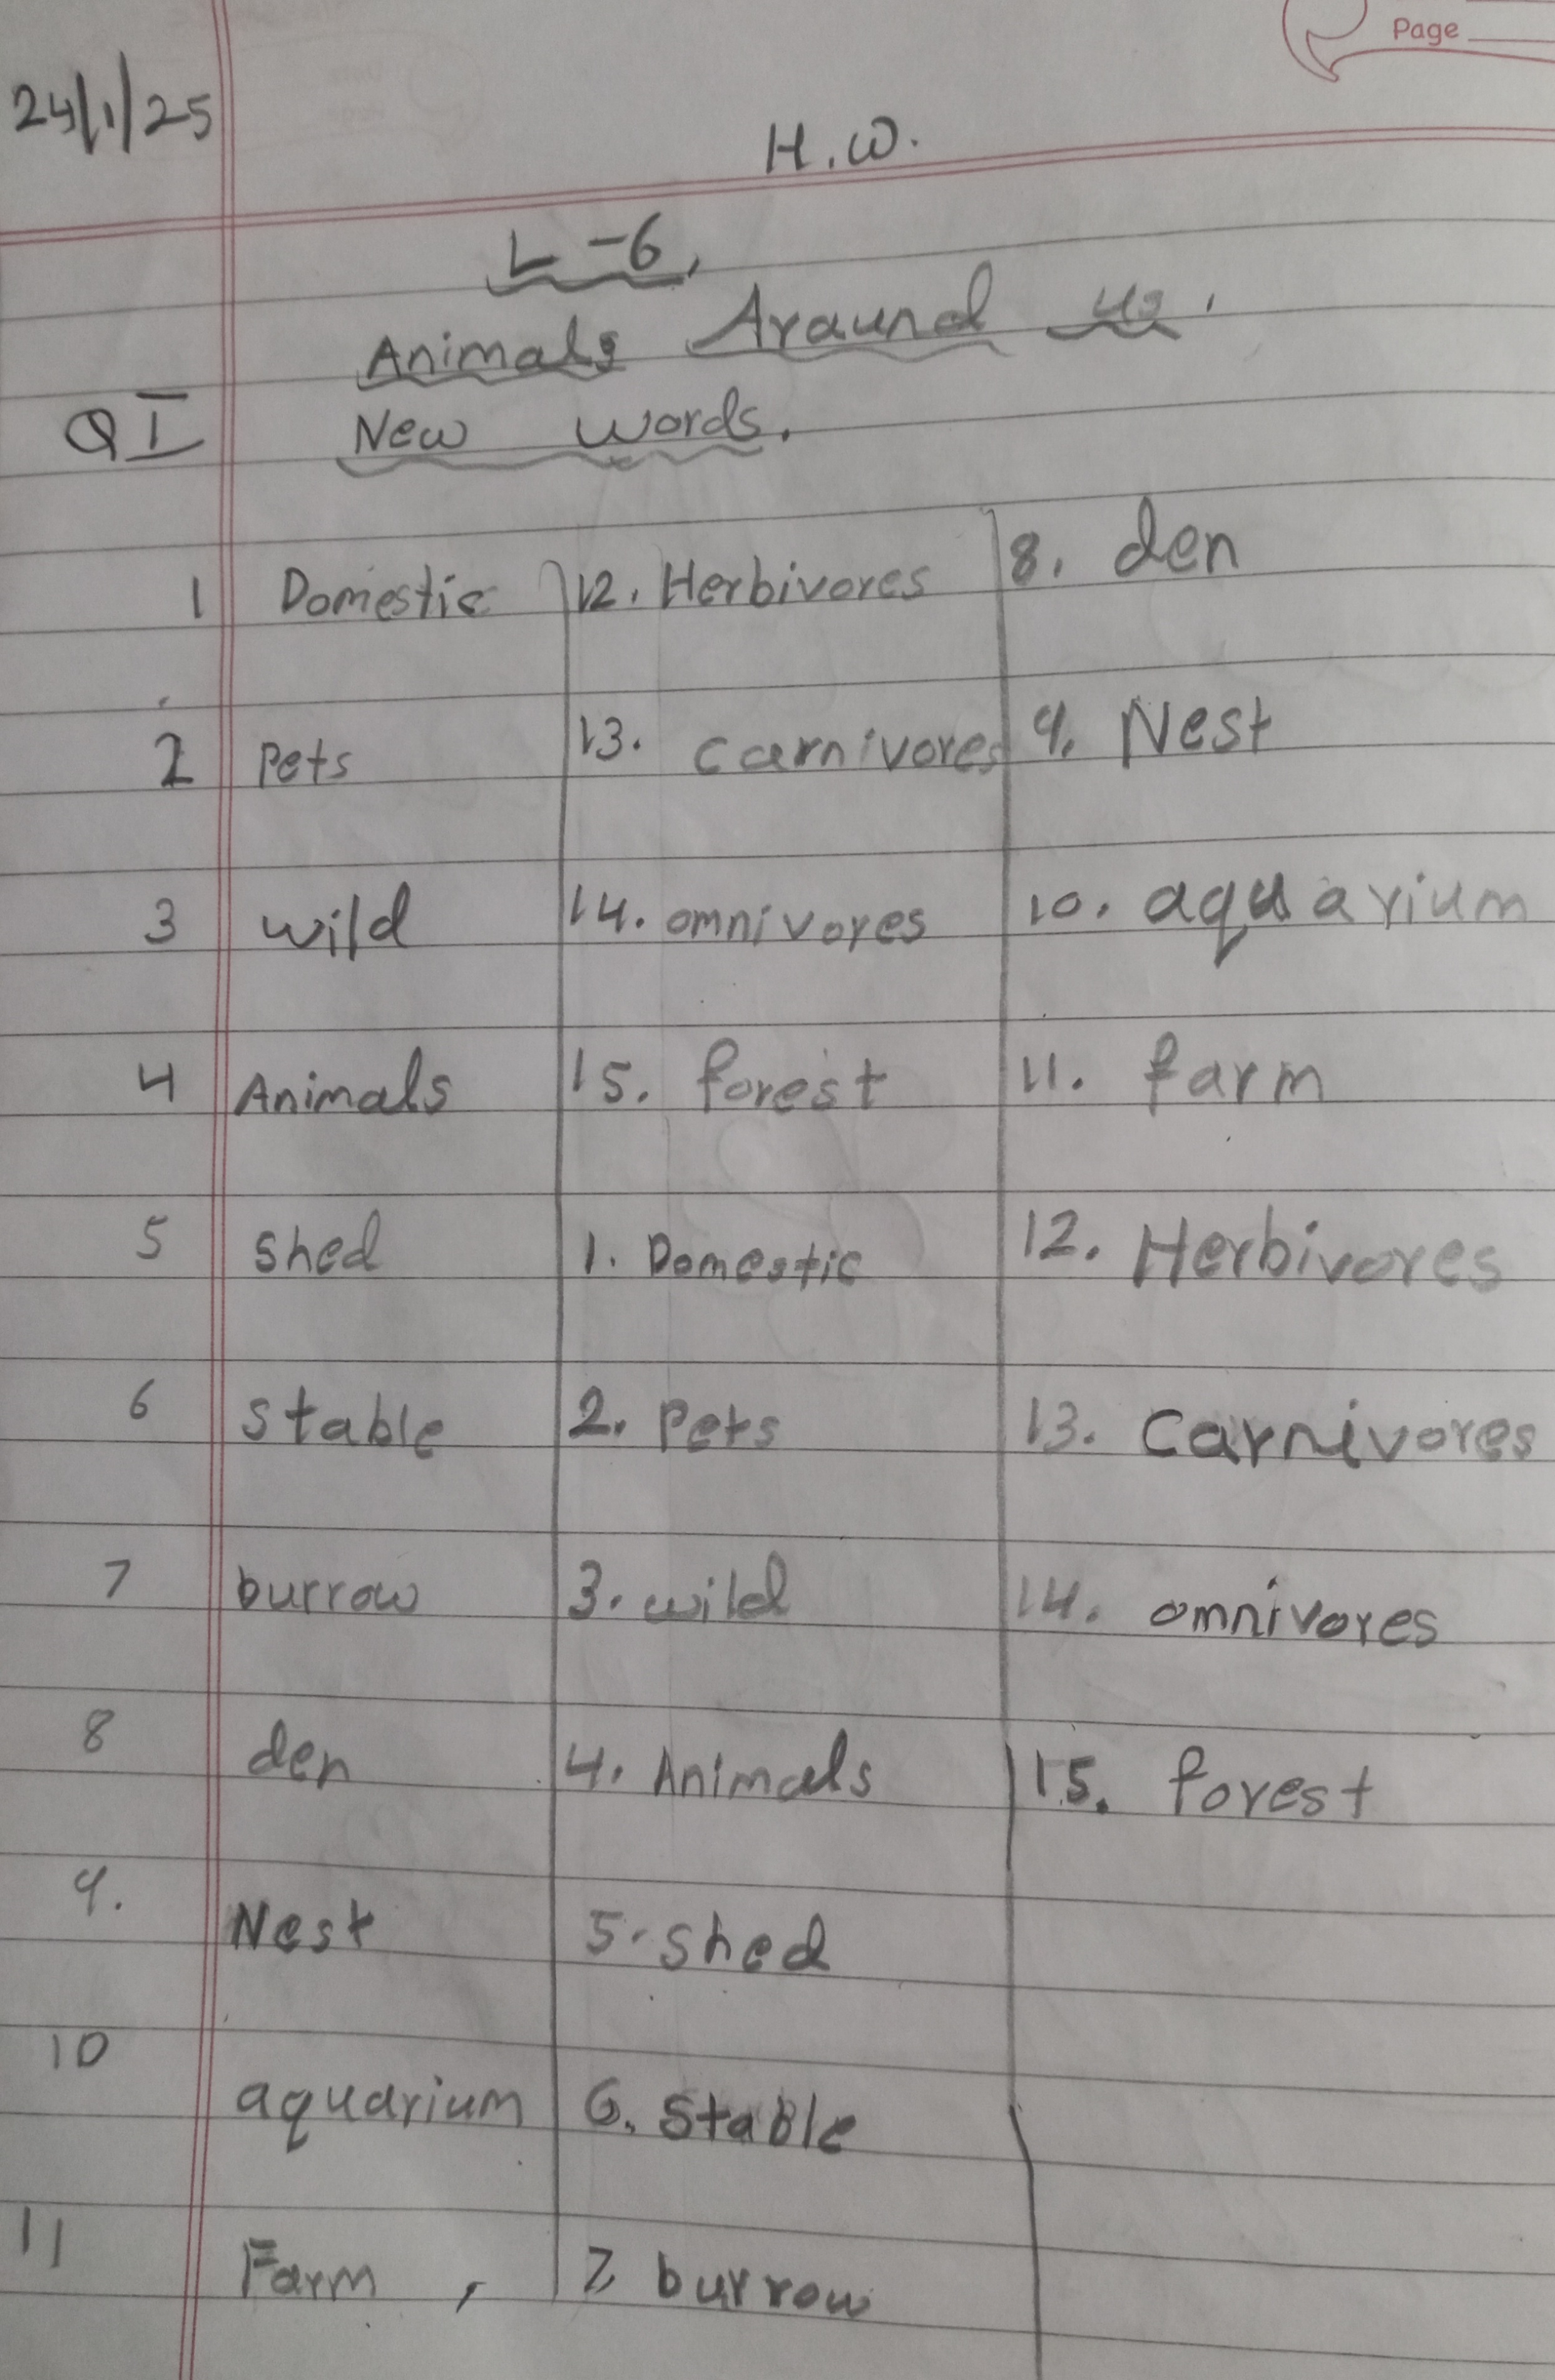 Page
24/1/25
H.W.
L-6,
Animals Araund us.
Q I New words.
1 Domestic
2 Pets
3 wild
4 Animals
5 shed
6 stable
7 burrow
8 den
9. Nest
10 aquarium
11 Farm,
12. Herbivores
13. carnivores
14. omnivores
15. forest
1. Domestic
2. Pets
3. wild
4. Animals
5. shed
6. stable
7, burrow
8. den
9. Nest
10. aquarium
11. farm
12. Herbivores
13. Carnivores
14. omnivores
15. forest